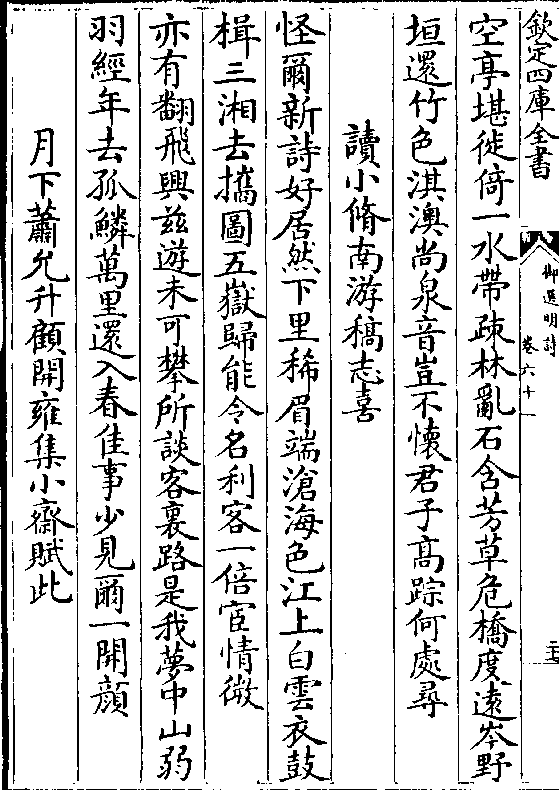 欽定四庫全書
御選明詩
卷六十一
二十
空亭堪徙倚一水帶疎林亂石含芳草危橋度遠岑野
垣還竹色淇澳尚泉音豈不懷君子高踪何處尋
讀小脩南游稿志喜
怪爾新詩好居然下里稀眉端滄海色江上白雲衣鼓
楫三湘去攜圖五嶽歸能令名利客一倍宦情微
亦有翻飛興兹遊未可攀所談客裏路是我夢中山弱
羽經年去孤鱗萬里還入春佳事少見爾一開顔
月下蕭允升顧開雍集小齋賦此